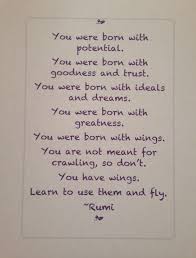 You were born with
potential.
You were born with
goodness and trust.
You were born with ideals
and dreams.
You were born with
greatness.
You were born with wings.
You are not meant for
crawling, so don't.
You have wings.
Learn to use them and fly.
~Rumi